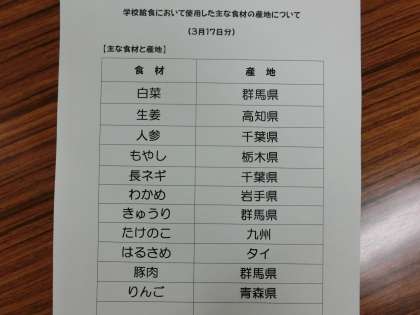 学校給食において使用した主な食材の産地について
(3月17日分)
【主な食材と産地】
食材 産地
白菜 群馬県
生姜 高知県
人参 千葉県
もやし 栃木県
長ネギ 千葉県
わかめ 岩手県
きゅうり 群馬県
たけのこ 九州
はるさめ タイ
豚肉 群馬県
りんご 青森県